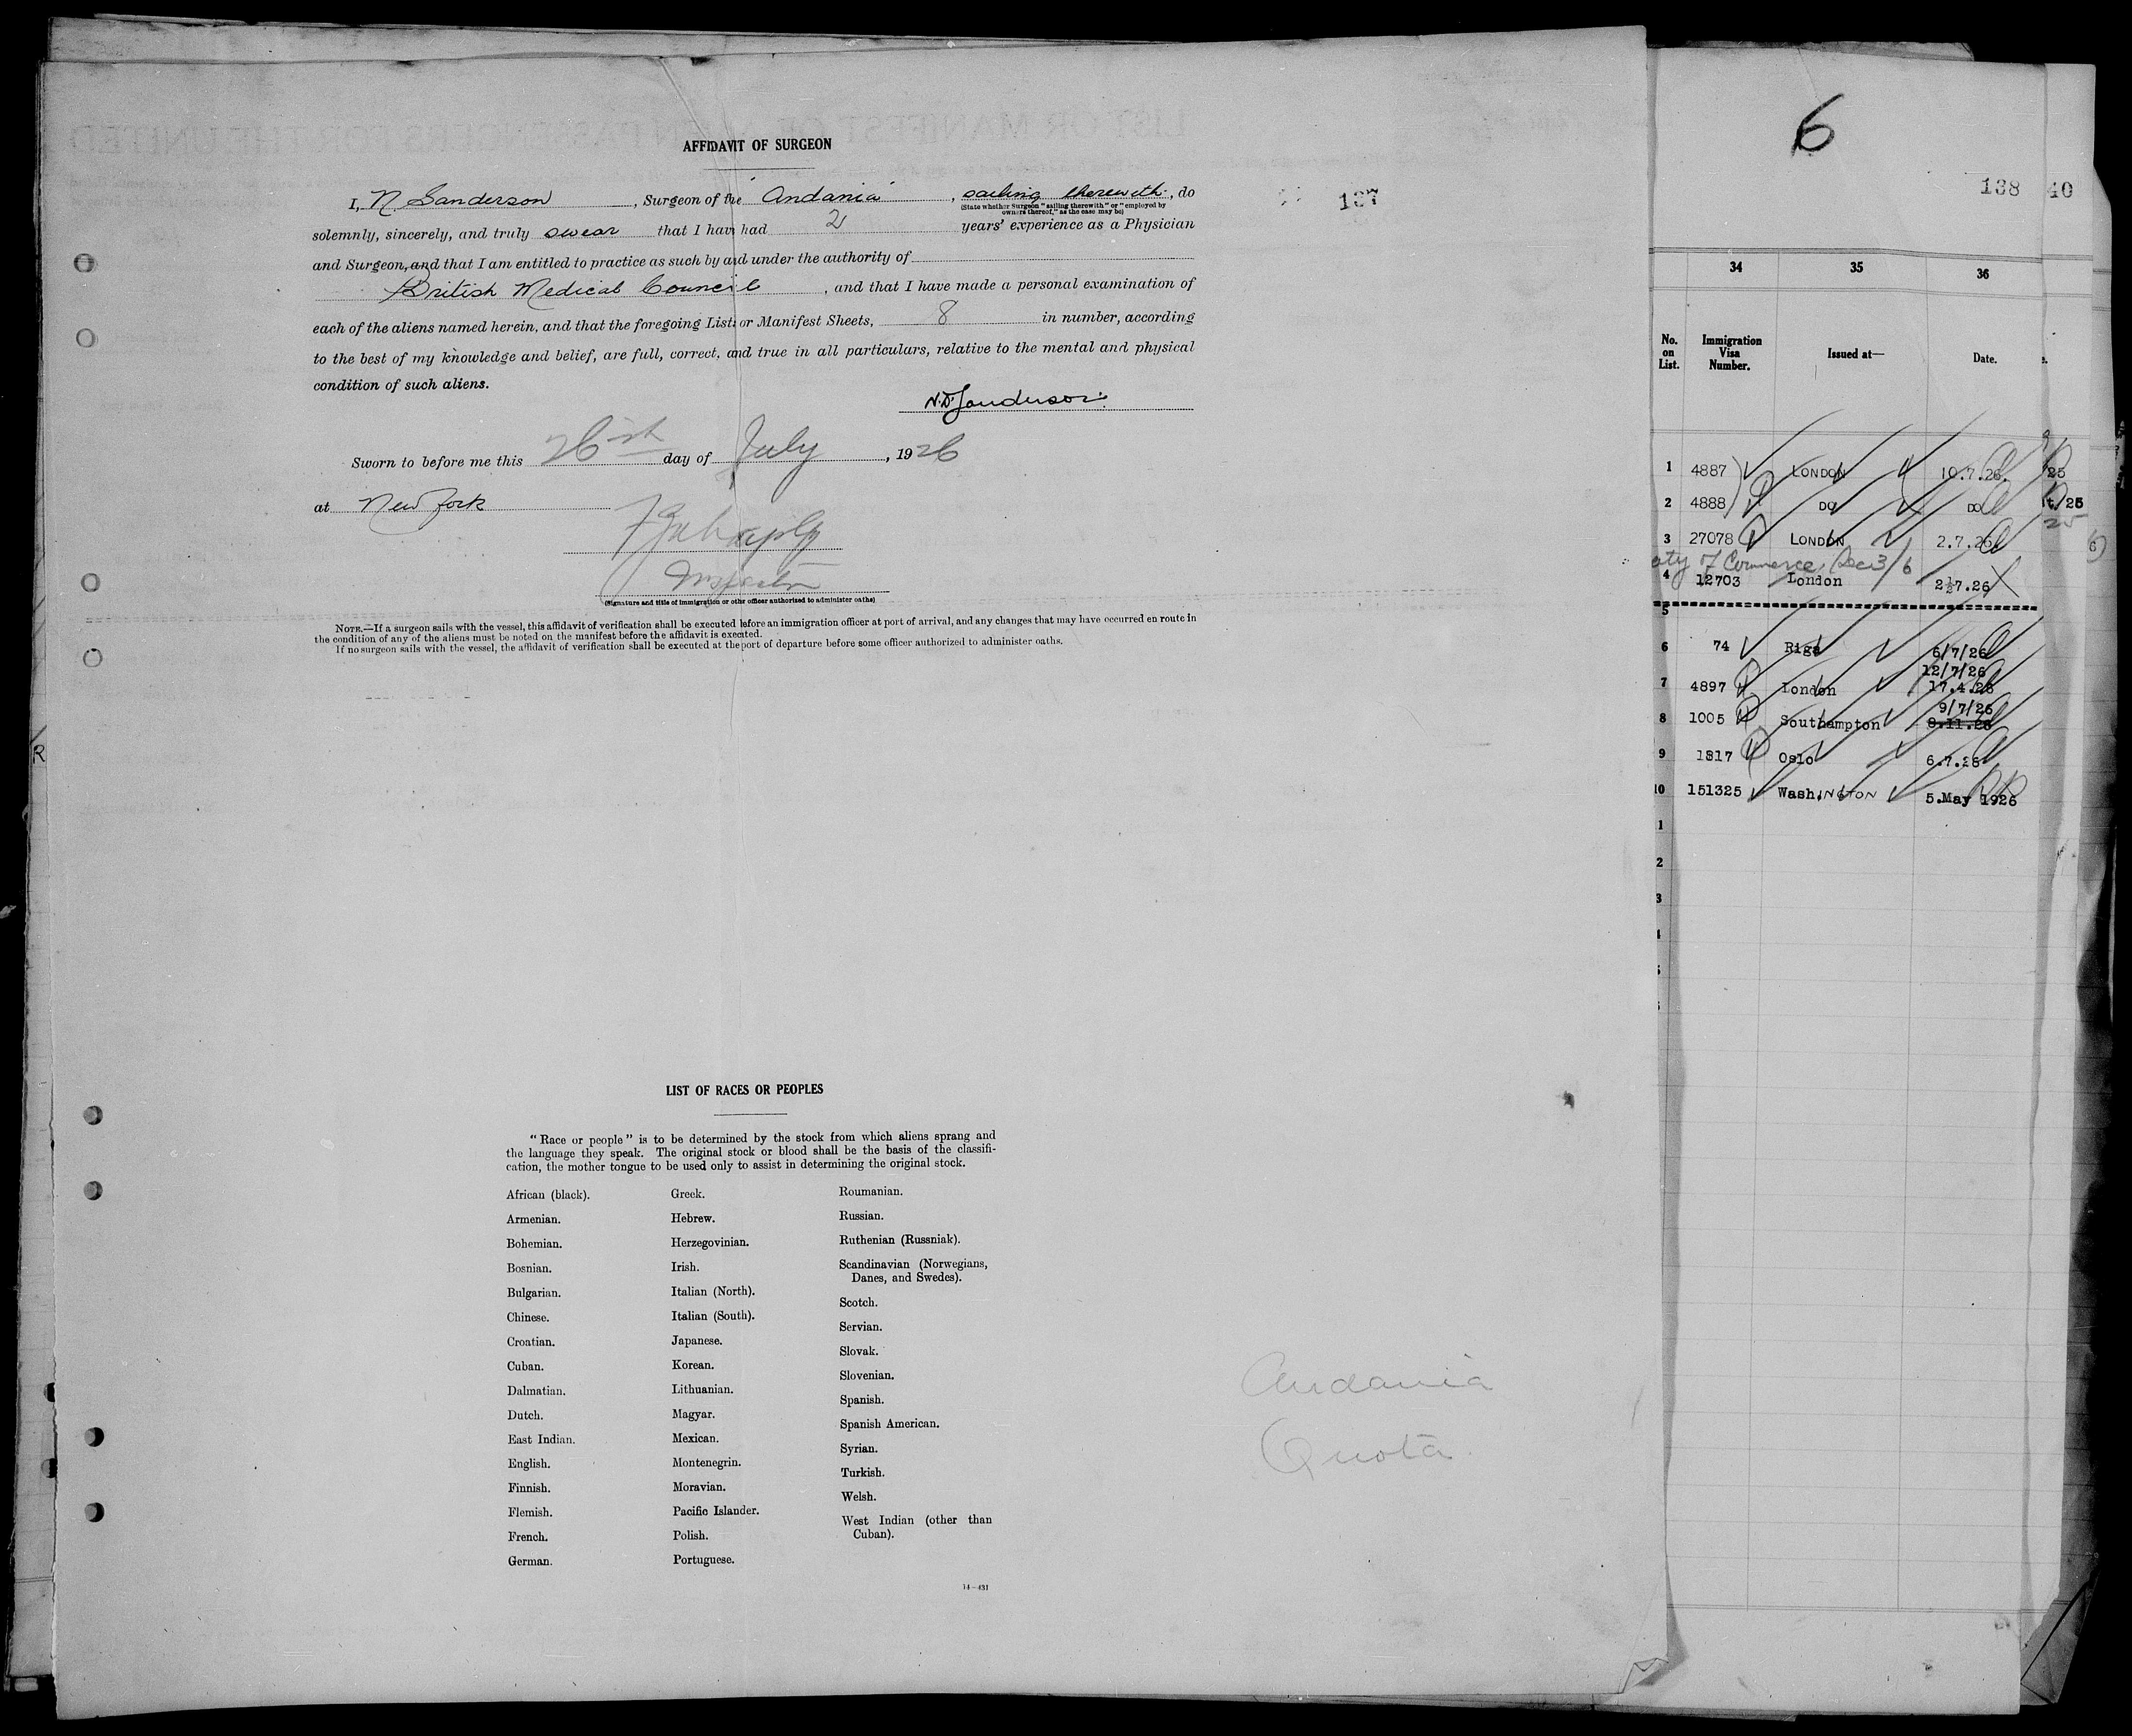 AFFIDAVIT OF SURGEON
I, N. Sanderson, Surgeon of the "Andania", sailing therewith, do
(State whether Surgeon "sailing therewith" or "employed by
owners thereof," as the case may be)
solemnly, sincerely, and truly swear that I have had 2 years' experience as a Physician
and Surgeon, and that I am entitled to practice as such by and under the authority of
British Medical Council, and that I have made a personal examination of
each of the aliens named herein, and that the foregoing Lists or Manifest Sheets, 8 in number, according
to the best of my knowledge and belief, are full, correct, and true in all particulars, relative to the mental and physical
condition of such aliens.
N.D. Sanderson.
Sworn to before me this 26th day of July, 1926
at New York
Inspector
(Signature and title of immigration or other officer authorized to administer oaths)
NOTE.—If a surgeon sails with the vessel, this affidavit of verification shall be executed before an immigration officer at port of arrival, and any changes that may have occurred en route in
the condition of any of the aliens must be noted on the manifest before the affidavit is executed.
If no surgeon sails with the vessel, the affidavit of verification shall be executed at the port of departure before some officer authorized to administer oaths.
137
LIST OF RACES OR PEOPLES
"Race or people" is to be determined by the stock from which aliens sprang and
the language they speak. The original stock or blood shall be the basis of the classifi-
cation, the mother tongue to be used only to assist in determining the original stock.
African (black).
Armenian.
Bohemian.
Bosnian.
Bulgarian.
Chinese.
Croatian.
Cuban.
Dalmatian.
Dutch.
East Indian.
English.
Finnish.
Flemish.
French.
German.
Greek.
Hebrew.
Herzegovinian.
Irish.
Italian (North).
Italian (South).
Japanese.
Korean.
Lithuanian.
Magyar.
Mexican.
Montenegrin.
Moravian.
Pacific Islander.
Polish.
Portuguese.
Roumanian.
Russian.
Ruthenian (Russniak).
Scandinavian (Norwegians,
Danes, and Swedes).
Scotch.
Servian.
Slovak.
Slovenian.
Spanish.
Spanish American.
Syrian.
Turkish.
Welsh.
West Indian (other than
Cuban).
14—431
Andania
Quota
R
6
138 40
34 35 36
No. on List. Immigration Visa Number. Issued at— Date.
1 4887 LONDON 10.7.26. 25
2 4888 DO DO t/25
25
3 27078 LONDON 2.7.26
aty of Commerce, Sec 3/6
4 12703 London 7.26
5
6 74 Riga 6/7/26
12/7/26
7 4897 London 17.4.26
9/7/26
8 1005 Southampton 8.11.26
9 1317 Oslo 6.7.26
10 151325 WashINGTON 5.May 1926
1
2
3